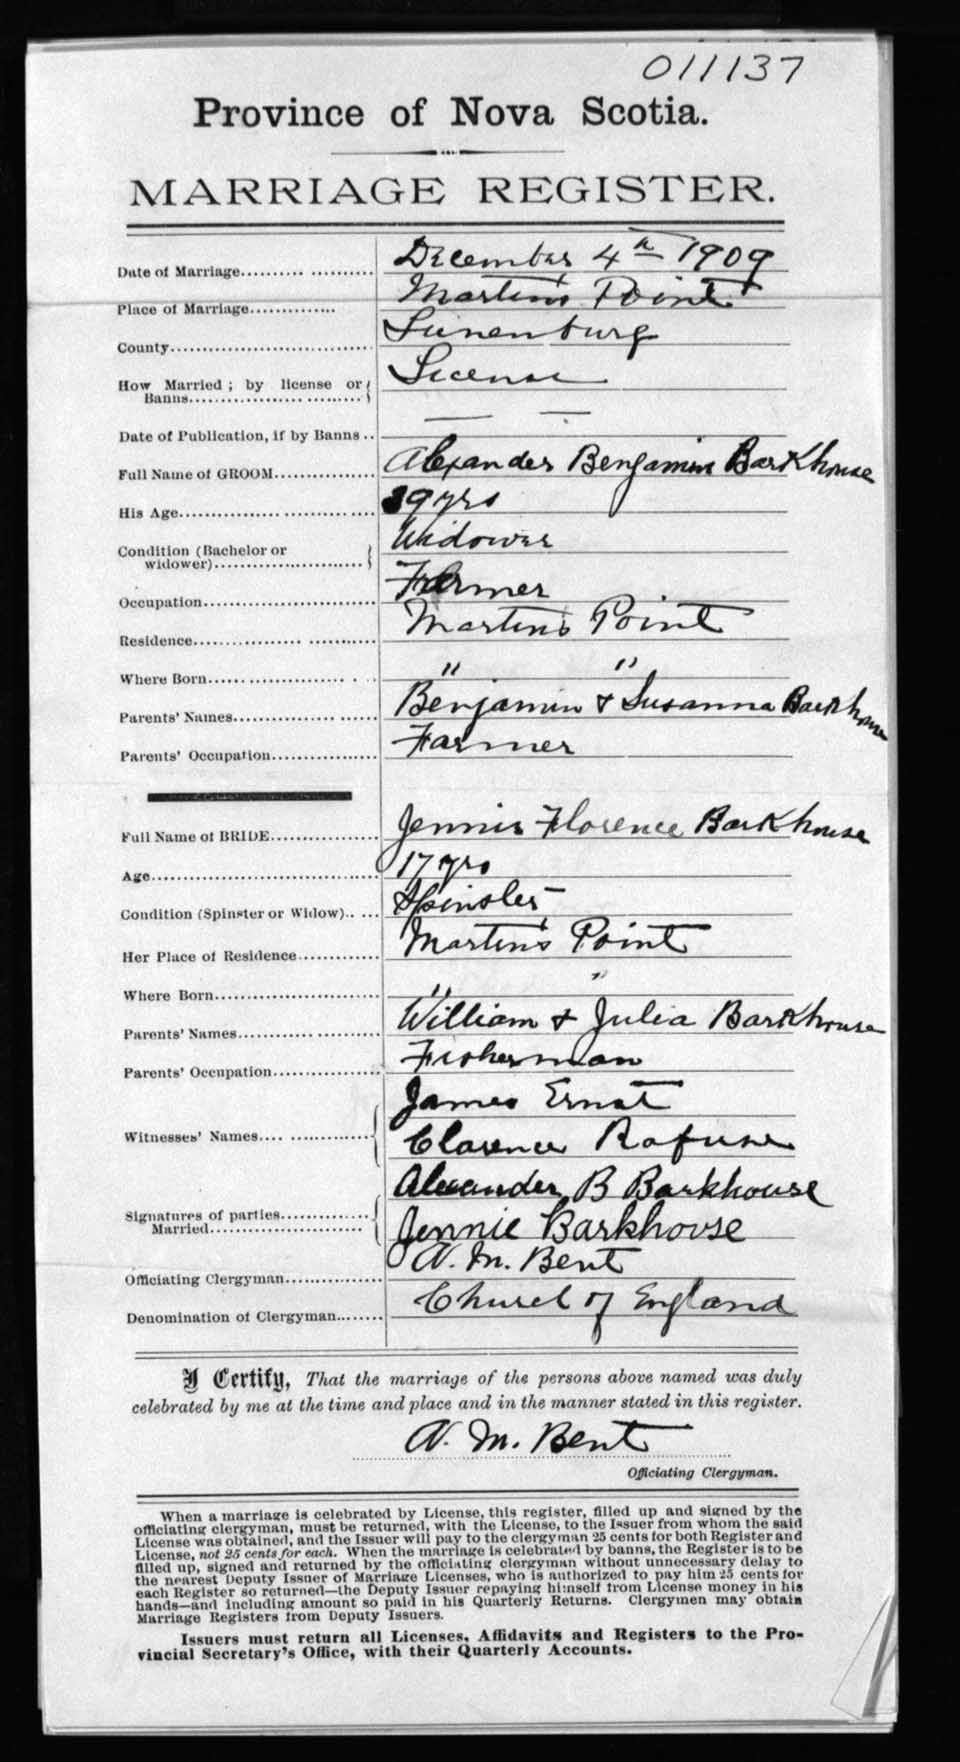 011137
Province of Nova Scotia.
MARRIAGE REGISTER.
Date of Marriage December 4th 1909
Place of Marriage Martin's Point
County Lunenburg
How Married; by license or Banns License
Date of Publication, if by Banns — —
Full Name of GROOM Alexander Benjamin Barkhouse
His Age 39 yrs
Condition (Bachelor or widower) Widower
Occupation Farmer
Residence Martin's Point
Where Born " "
Parents' Names Benjamin & Susanna Barkhouse
Parents' Occupation Farmer
Full Name of BRIDE Jennie Florence Barkhouse
Age 17 yrs
Condition (Spinster or Widow) Spinster
Her Place of Residence Martin's Point
Where Born " "
Parents' Names William & Julia Barkhouse
Parents' Occupation Fisherman
Witnesses' Names James Ernst
Clarence Rafuse
Signatures of parties Married Alexander B Barkhouse
Jennie Barkhouse
Officiating Clergyman A. M. Bent
Denomination of Clergyman Church of England
I Certify, That the marriage of the persons above named was duly
celebrated by me at the time and place and in the manner stated in this register.
A. M. Bent
Officiating Clergyman.
When a marriage is celebrated by License, this register, filled up and signed by the
officiating clergyman, must be returned, with the License, to the Issuer from whom the said
License was obtained, and the Issuer will pay to the clergyman 25 cents for both Register and
License, not 25 cents for each. When the marriage is celebrated by banns, the Register is to be
filled up, signed and returned by the officiating clergyman without unnecessary delay to
the nearest Deputy Issuer of Marriage Licenses, who is authorized to pay him 25 cents for
each Register so returned—the Deputy Issuer repaying himself from License money in his
hands—and including amount so paid in his Quarterly Returns. Clergymen may obtain
Marriage Registers from Deputy Issuers.
Issuers must return all Licenses, Affidavits and Registers to the Pro-
vincial Secretary's Office, with their Quarterly Accounts.